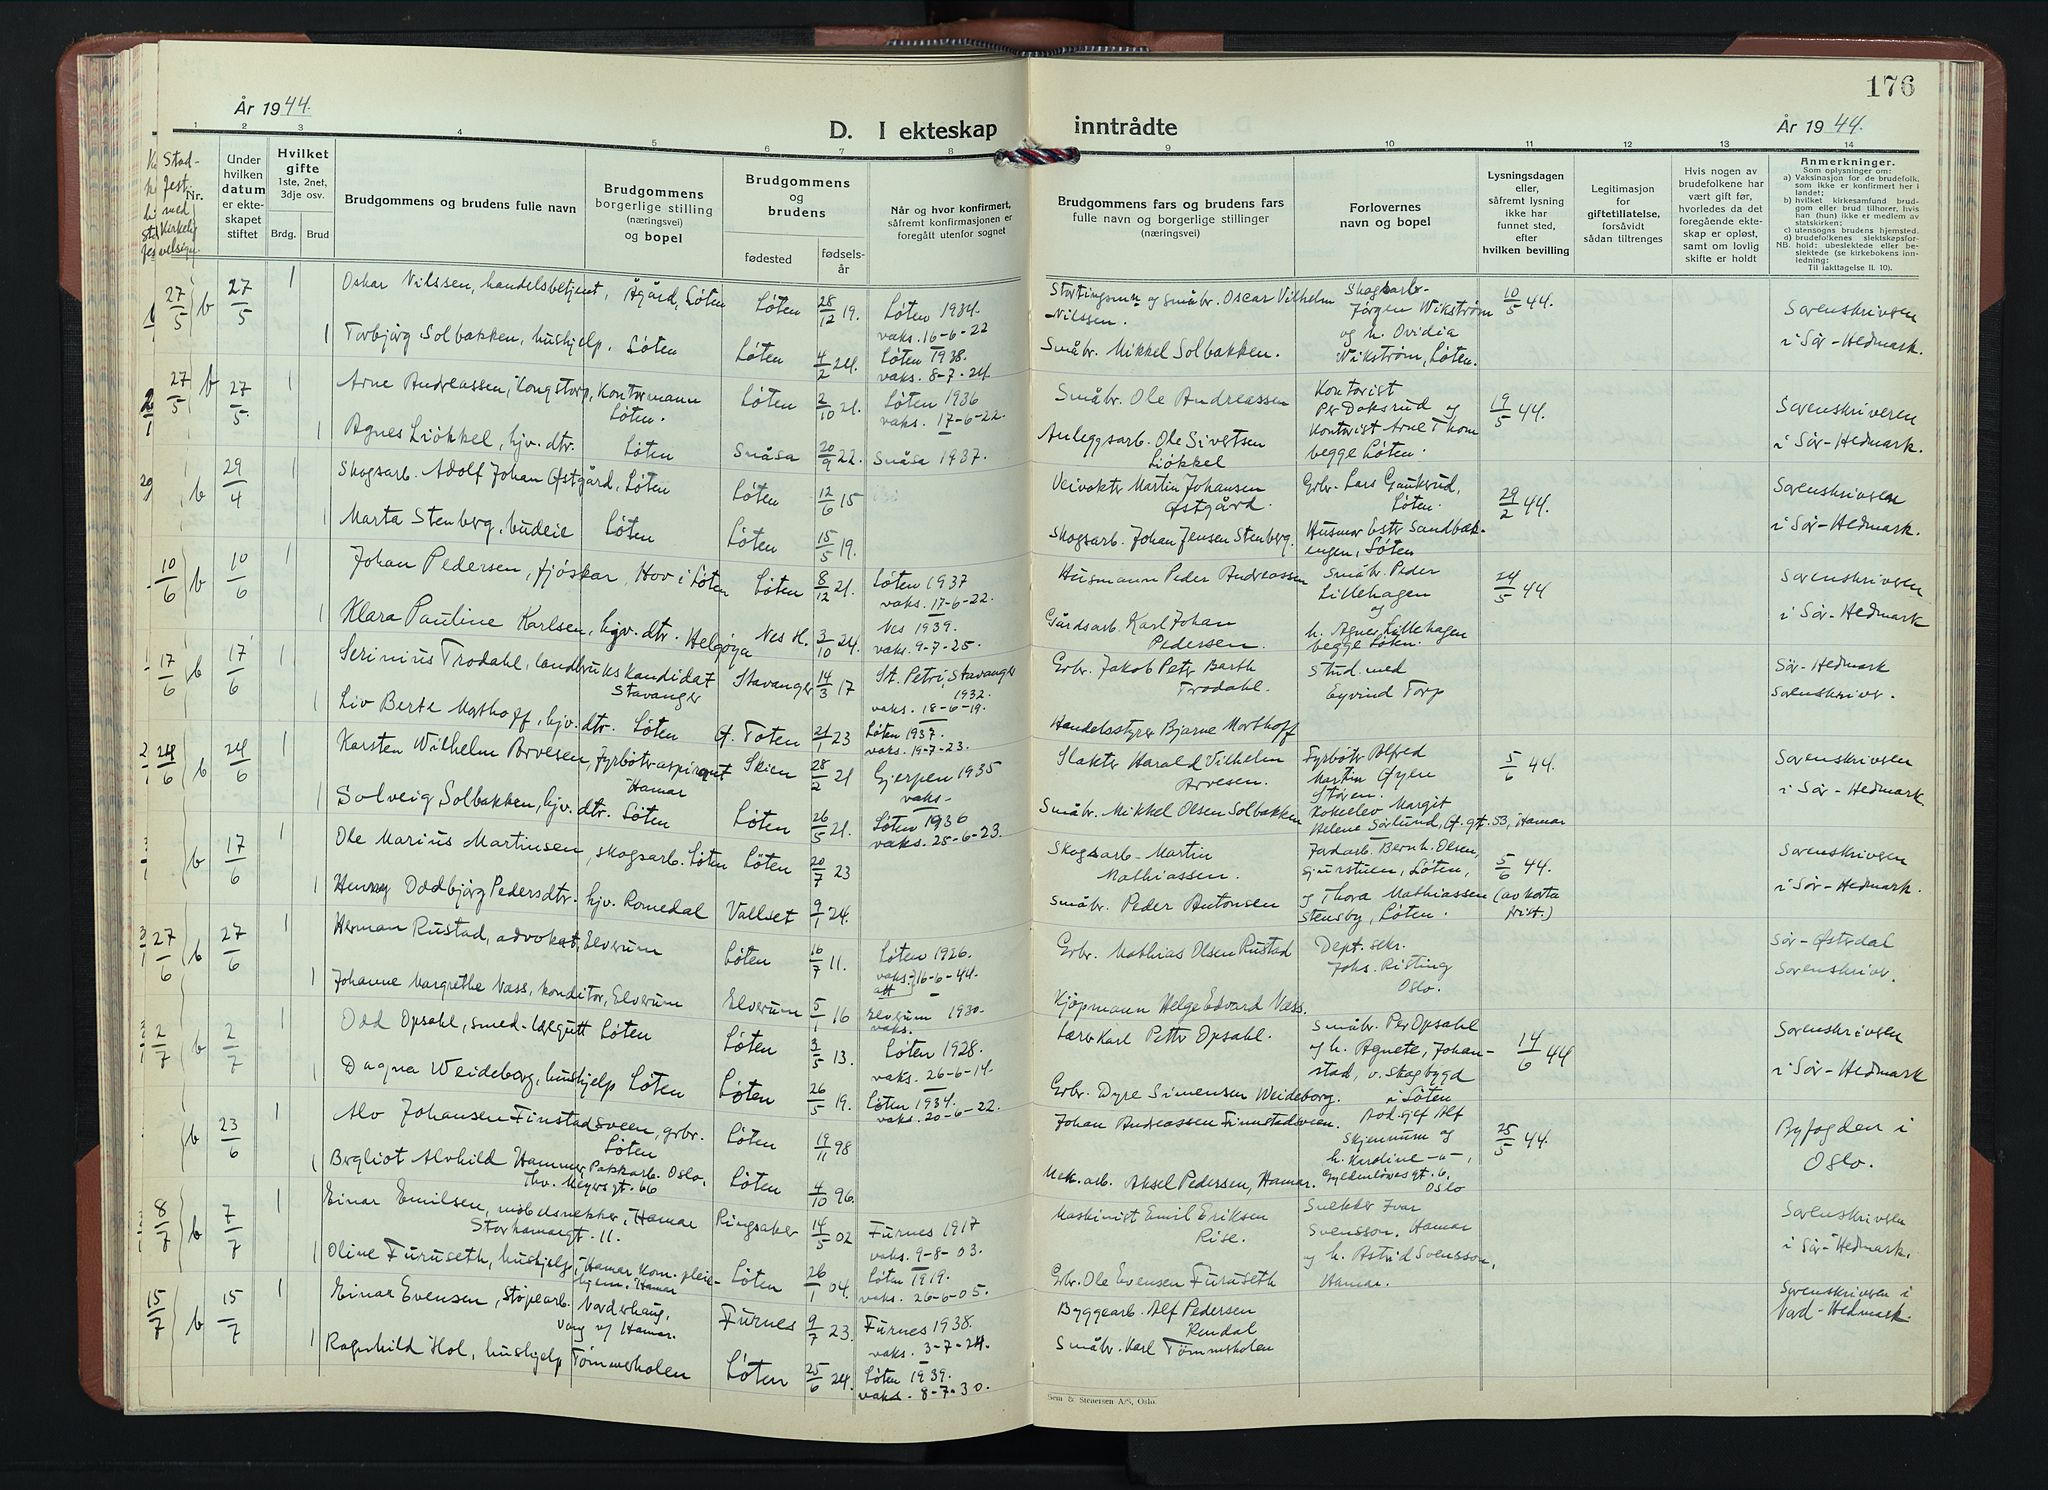 176
År 1944.
D. I ekteskap inntrådte
År 1944.
1 2 3 4 5 6 7 8 9 10 11 12 13 14
Stad-
fest.
med
kirkelig
velsign.
Nr.
Under hvilken datum er ekteskapet stiftet
Hvilket gifte
1ste, 2net, 3dje osv.
Brdg. Brud
Brudgommens og brudens fulle navn
Brudgommens borgerlige stilling (næringsvei) og bopel
Brudgommens og brudens
fødested
fødselsår
Når og hvor konfirmert, såfremt konfirmasjonen er foregått utenfor sognet
Brudgommens fars og brudens fars fulle navn og borgerlige stillinger (næringsvei)
Forlovernes navn og bopel
Lysningsdagen eller, såfremt lysning ikke har funnet sted, efter hvilken bevilling
Legitimasjon for giftetillatelse, forsåvidt sådan tiltrenges
Hvis nogen av brudefolkene har vært gift før, hvorledes da det foregående ekteskap er opløst, samt om lovlig skifte er holdt
Anmerkninger.
Som oplysninger om:
a) Vaksinasjon for de brudefolk, som ikke er konfirmert her i landet;
b) hvilket kirkesamfund brudgom eller brud tilhører, hvis han (hun) ikke er medlem av statskirken;
c) utensogns brudens hjemsted.
d) brudefolkenes slektskapsforhold: ubeslektede eller beslektede (se kirkebokens innledning;
NB. Til iakttagelse II. 10).
27/5 b 27/5 1 Oskar Nilssen, handelsbetjent, Ågård, Løten Løten 28/12 19. Løten 1934. vaks. 16-6-22
Stortingsmn og småbr. Oscar Vilhelm Nilssen. Skogsarb. Jørgen Wikstrøm og h. Ovidia Wikstrøm, Løten. 10/5 44. Sorenskriveren i Sør-Hedmark.
1 Torbjørg Solbakken, hushjelp. Løten Løten 4/2 24. Løten 1938. vaks. 8-7-24
Småbr. Mikkel Solbakken.
27/5 b 27/5 1 Arne Andreassen, Kongstorp, Kontormann Løten. Løten 2/10 21. Løten 1936 vaks. 17-6-22.
Småbr. Ole Andreassen Kontorist Per Doksrud og Kontorist Arne Thom begge Løten. 19/5 44. Sorenskriveren i Sør-Hedmark.
1 Agnes Liøkkel, hjv. dtr. Løten Snåsa 20/9 22. Snåsa 1937.
Anleggsarb. Ole Sivertsen Liøkkel
b 29/4 1 Skogsarb. Adolf Johan Østgård, Løten Løten 12/6 15
Veivokter Martin Johansen Østgård. Grbr. Lars Gaukrud, Løten. 29/2 44. Sorenskriveren i Sør-Hedmark.
1 Marta Stenberg, budeie Løten Løten 15/5 19.
Skogsarb. Johan Jensen Stenberg. Husmor Ester Sandbækengen, Løten
10/6 b 10/6 1 Johan Pedersen, fjøskar, Hov i Løten Løten 8/12 21. Løten 1937 vaks. 17-6-22.
Husmann Peder Andreassen Småbr. Peder Lillehagen og h. Agnes Lillehagen begge Løten. 24/5 44 Sorenskriveren i Sør-Hedmark
1 Klara Pauline Karlsen, hjv. dtr. Helgøya Nes H. 3/10 24. Nes 1939. vaks. 9-7-25.
Gårdsarb. Karl Johan Pedersen.
17/6 b 17/6 1 Serinius Trodahl, landbrukskandidat Stavanger Stavanger 14/3 17 St. Petri, Stavanger 1932. vaks. 18-6-19.
Grbr. Jakob Peter Barth Trodahl. Stud. med Eyvind Torp Sør-Hedmark Sorenskriver.
1 Liv Berte Morthoff, hjv. dtr. Løten Ø. Toten 21/1 23 Løten 1937. vaks. 19-7-23.
Handelsstyrer Bjarne Morthoff
24/6 b 24/6 1 Karsten Wilhelm Arvesen, fyrbøteraspirant Hamar Skien 28/2 21 Gjerpen 1935 vaks-
Slakter Harald Vilhelm Arvesen. Fyrbøter Alfred Martin Øyen Støren. Kokkelev Margit Helene Sørlund, Ø. gt. 53, Hamar 5/6 44. Sorenskriveren i Sør-Hedmark
1 Solveig Solbakken, hjv. dtr. Løten Løten 26/5 21. Løten 1936 vaks. 25-6-23.
Småbr. Mikkel Olsen Solbakken
b 17/6 1 Ole Marius Martinsen, skogsarb. Løten Løten 20/7 23
Skogsarb. Martin Mathiassen. Jordarb. Bernh. Olsen, Gjurstuen, Løten, og Thora Mathiassen Stensby, Løten. 5/6 44. (avkorta frist.) Sorenskriveren i Sør-Hedmark.
1 Henny Oddbjørg Pedersdtr. hjv. Romedal Vallset 9/1 24.
Småbr. Peder Antonsen
27/6 b 27/6 1 Herman Rustad, advokat, Elverum Løten 16/7 11. Løten 1926. vaks. att 16-6-44.
Grbr. Mathias Olsen Rustad Dept. sekr. Johs. Risting Oslo. Sør-Østerdal Sorenskriver.
1 Johanne Margrethe Vass, konditor, Elverum Elverum 5/1 16 Elverum 1930. vaks.
Kjøpmann Helge Edvard Vass.
2/7 b 2/7 1 Odd Opsahl, smed-lærgutt Løten Løten 3/5 13. Løten 1928. vaks. 26-6-14.
Lærer Karl Petter Opsahl. Småbr. Per Opsahl og h. Agnete, Johanstad, v. Skogbygd i Løten 14/6 44 Sorenskriveren i Sør-Hedmark
1 Dagna Weideborg, hushjelp Løten Løten 26/5 19. Løten 1934. vaks. 20-6-22.
Grbr. Dyre Simensen Weideborg.
b 23/6 1 Alv Johansen Finstadsveen, grbr. Løten Løten 19/11 98
Johan Andreassen Finnstadsveen. Avd. sjef Alf Skjennum og h. Karoline -"-, Gyldenløvesgt. 6, Oslo 25/5 44. Byfogden i Oslo.
1 Bergliot Alvhild Hammer, Pakkarb. Oslo, Thv. Meyersgt. 66 Løten 4/10 96.
Mek. arb. Aksel Pedersen, Hamar.
8/7 b 7/7 1 Einar Emilsen, møbelsnekker, Hamar Storhamargt. 11. Ringsaker 14/5 02 Furnes 1917 vaks. 9-8-03.
Maskinist Emil Eriksen Rise. Snekker Ivar Svensson, Hamar og h. Astrid Svensson, Hamar. Sorenskriveren i Sør-Hedmark.
1 Oline Furuseth, hushjelp, Hamar Kom. pleiehjem. Hamar Løten 26/1 04. Løten 1919. vaks. 26-6-05.
Grbr. Ole Evensen Furuseth
15/7 b 15/7 1 Einar Evensen, Støpearb. Norderhaug, Vang v/ Hamar. Furnes 9/7 23. Furnes 1938. vaks. 3-7-24.
Byggearb. Alf Pedersen Rendal Sorenskriveren i Nord-Hedmark.
1 Ragnhild Hol, hushjelp Tømmerholen Løten 25/6 24. Løten 1939. vaks. 8-7-30.
Småbr. Karl Tømmerholen
Sem & Stenersen A/S, Oslo.